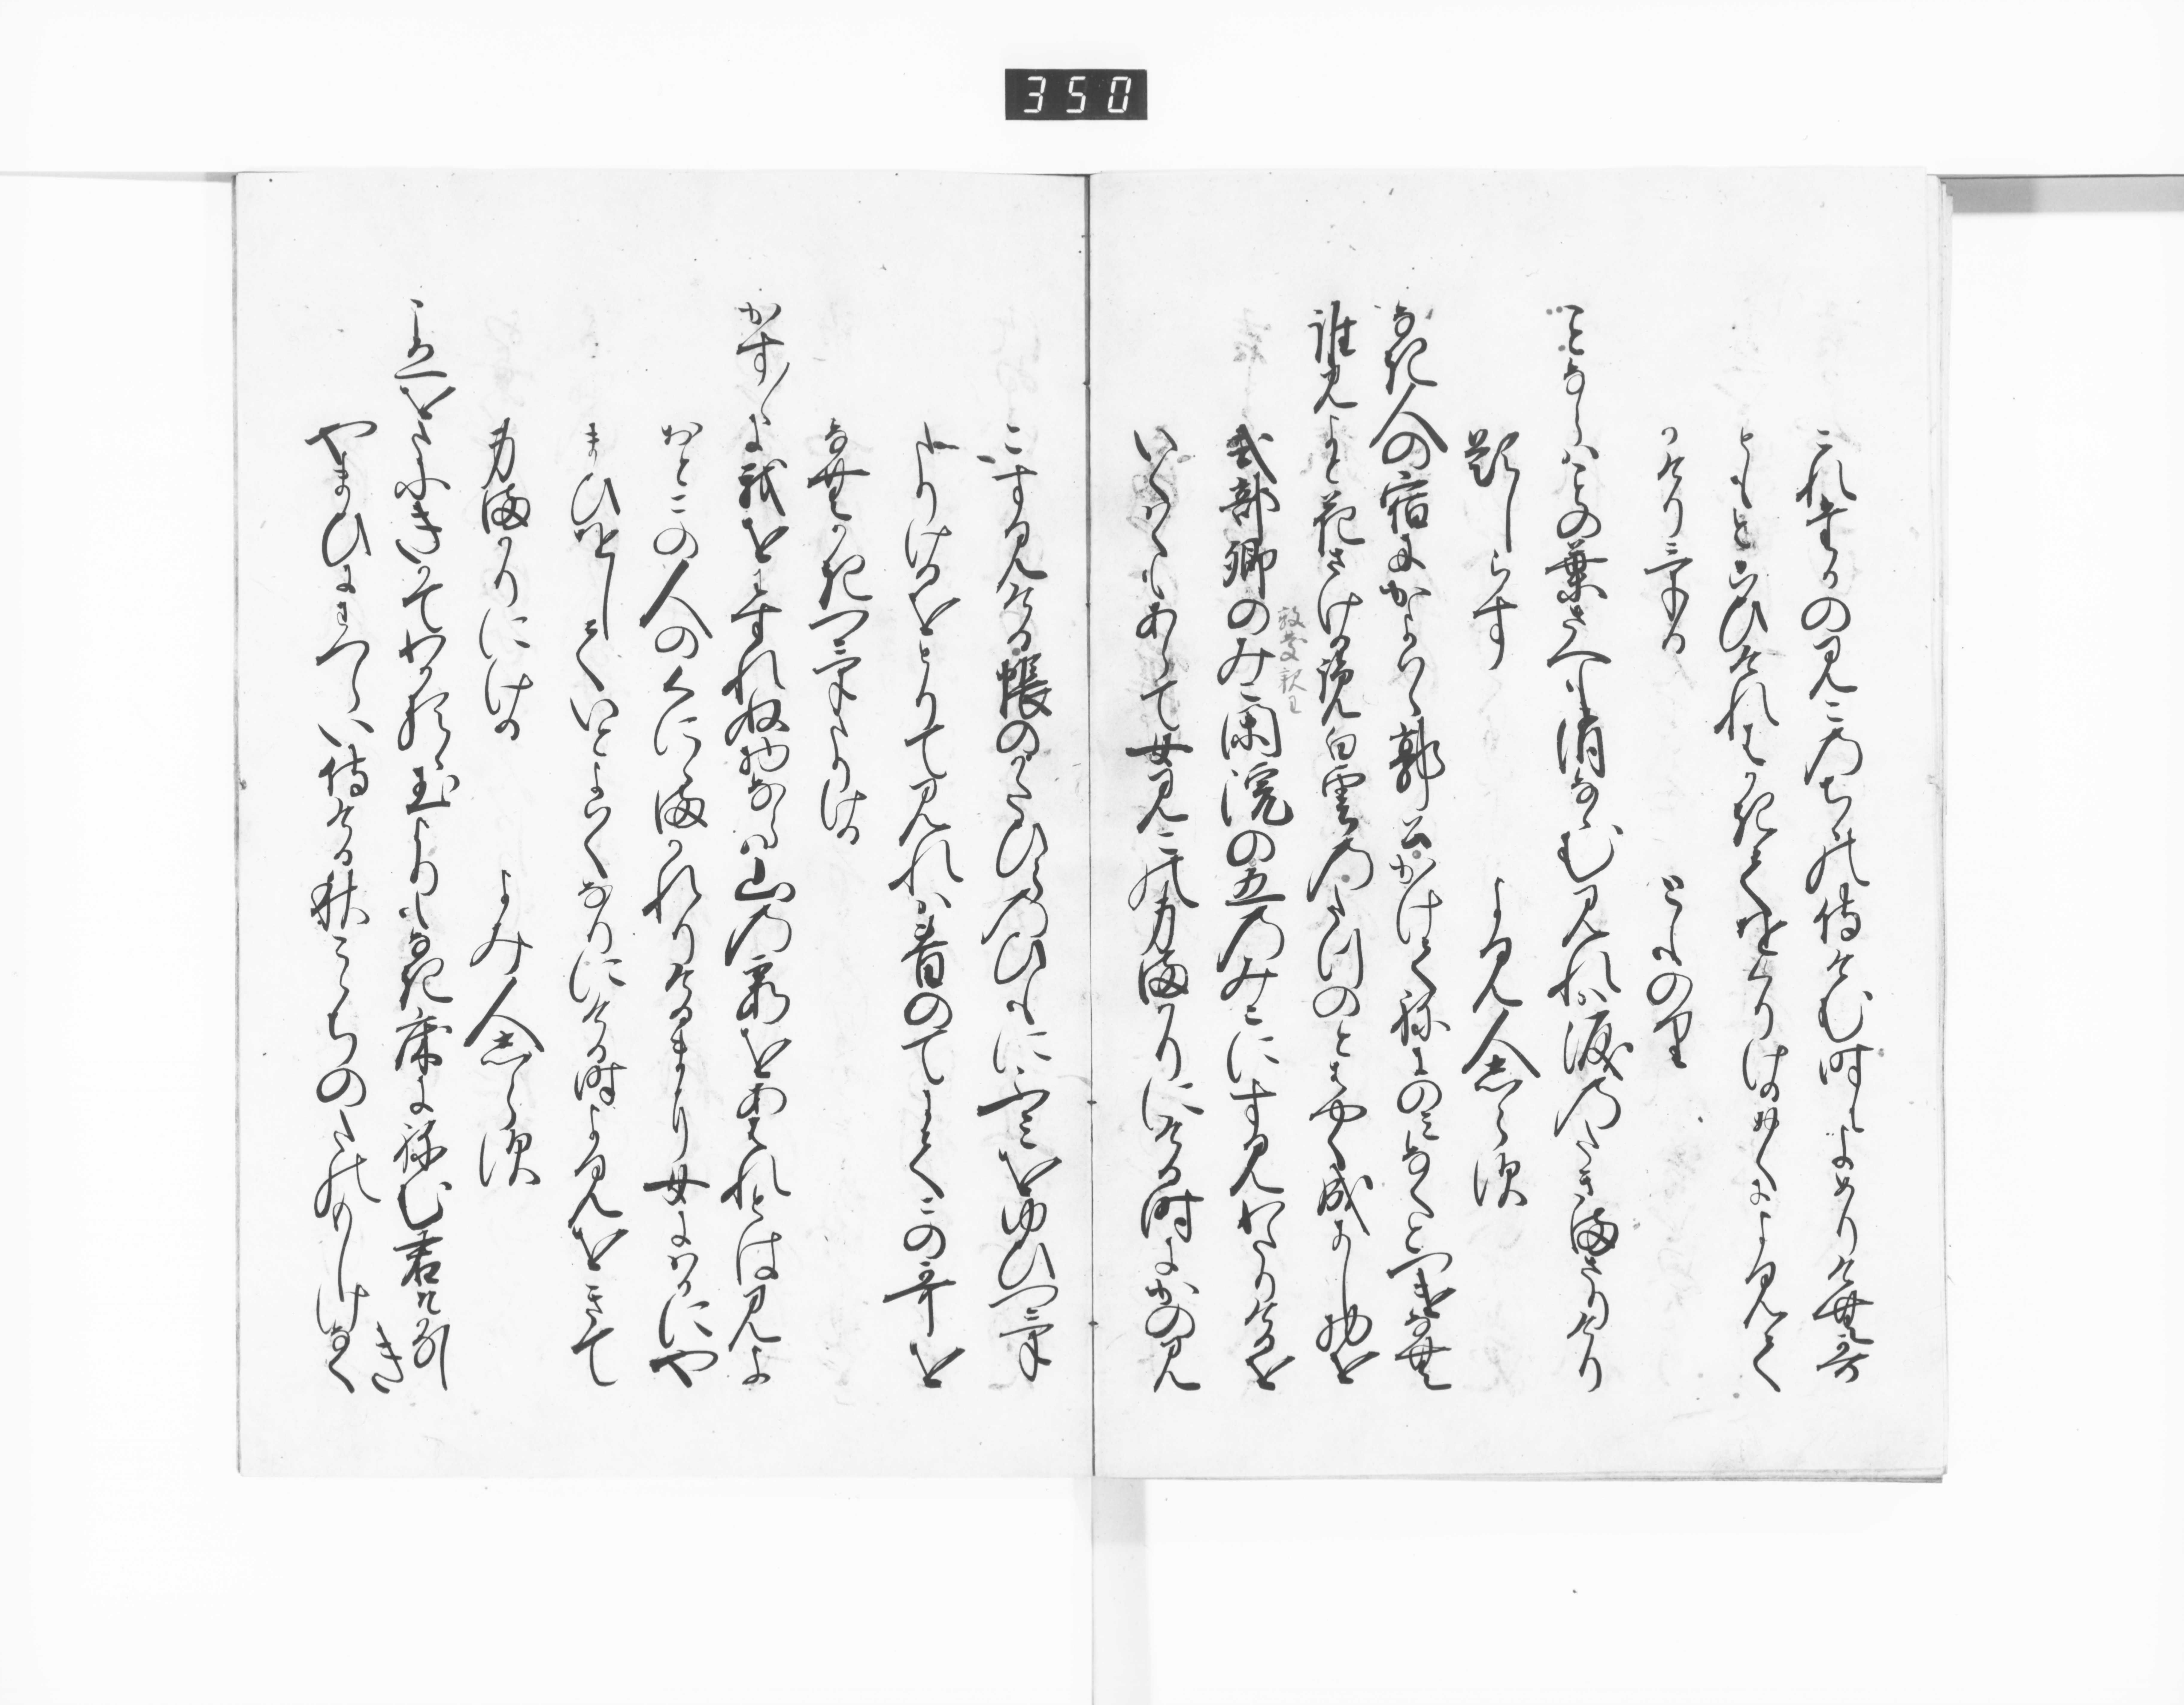 350
これたかのみこのちゝの侍けむ時によめりけむ哥
ともとこひけれはかきてをくりけるおくによみて
かけりける　とものり
ことならはことの葉さへも消なゝむ見れは涙のたきまさりけり
題しらす　よみ人しらす
なき人の宿にかよはゝ郭公かけてねにのみなくとつけなむ
誰見よと花さける覧白雲のたつのとはやく成にし物を
敦慶親王
式部卿のみこ閑院の五のみこにすみわたりけるを
いくはくもあらて女みこの身まかりにける時にかのみ
こすみける帳のかたひらのひもにふみをゆひつけ
たりけるをとりて見れは昔のてにてこの哥を
なむかきつけたりける
かす／＼に我をわすれぬ物ならは山の霞をあはれとは見よ
おとこの人のくにゝまかれりけるまに女にはかにや
まひをしていとよはくなりにける時よみをきて
身まかりにける　よみ人しらす
こゑをたにきかてわかるゝ玉よりもなき床にねむ君そかなしき
やまひにわつらひ侍ける秋こゝちのたのもしけなく